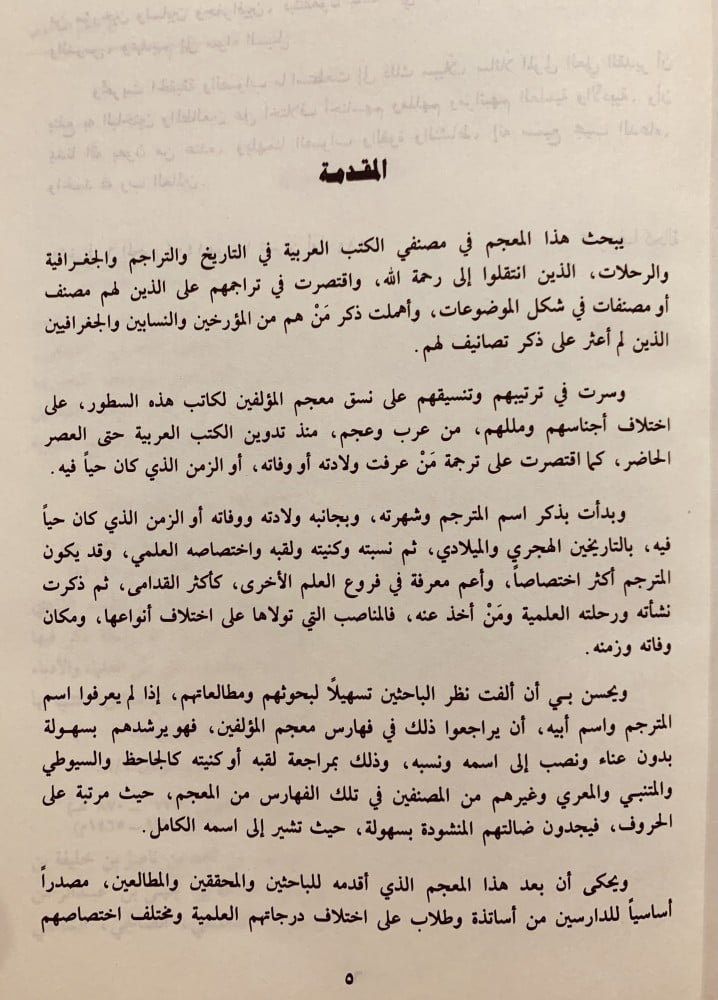 المقدمة
يبحث هذا المعجم في مصنفي الكتب العربية في التاريخ والتراجم والجغرافية
والرحلات، الذين انتقلوا إلى رحمة الله، واقتصرت في تراجمهم على الذين لهم مصنف
أو مصنفات في شكل الموضوعات، وأهملت ذكر مَنْ هم من المؤرخين والنسابين والجغرافيين
الذين لم أعثر على ذكر تصانيف لهم.
وسرت في ترتيبهم وتنسيقهم على نسق معجم المؤلفين لكاتب هذه السطور، على
اختلاف أجناسهم ومللهم، من عرب وعجم، منذ تدوين الكتب العربية حتى العصر
الحاضر، كما اقتصرت على ترجمة مَنْ عرفت ولادته أو وفاته، أو الزمن الذي كان حياً فيه.
وبدأت بذكر اسم المترجم وشهرته، وبجانبه ولادته ووفاته أو الزمن الذي كان حياً
فيه، بالتاريخين الهجري والميلادي، ثم نسبته وكنيته ولقبه واختصاصه العلمي، وقد يكون
المترجم أكثر اختصاصاً، وأعم معرفة في فروع العلم الأخرى، كأكثر القدامى، ثم ذكرت
نشأته ورحلته العلمية ومَنْ أخذ عنه، فالمناصب التي تولاها على اختلاف أنواعها، ومكان
وفاته وزمنه.
ويحسن بي أن ألفت نظر الباحثين تسهيلاً لبحوثهم ومطالعاتهم، إذا لم يعرفوا اسم
المترجم واسم أبيه، أن يراجعوا ذلك في فهارس معجم المؤلفين، فهو يرشدهم بسهولة
بدون عناء ونصب إلى اسمه ونسبه، وذلك بمراجعة لقبه أو كنيته كالجاحظ والسيوطي
والمتنبي والمعري وغيرهم من المصنفين في تلك الفهارس من المعجم، حيث مرتبة على
الحروف، فيجدون ضالتهم المنشودة بسهولة، حيث تشير إلى اسمه الكامل.
ويحكى أن بعد هذا المعجم الذي أقدمه للباحثين والمحققين والمطالعين، مصدراً
أساسياً للدارسين من أساتذة وطلاب على اختلاف درجاتهم العلمية ومختلف اختصاصهم
٥